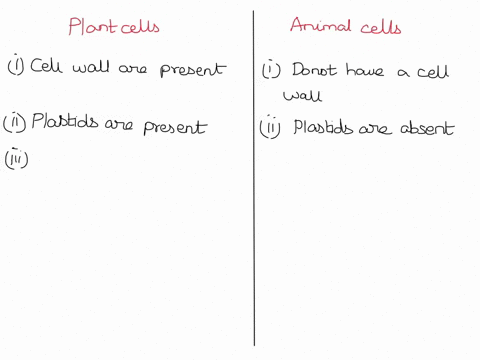 Plant cells
(i) Cell wall are present
(ii) Plastids are present
(iii)
Animal cells
(i) Donot have a cell
wall
(ii) Plastids are absent